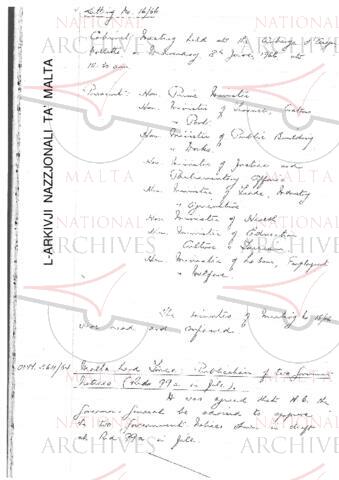 Sitting No. 16/66
Cabinet Meeting held at the Auberge d'Aragon
Valletta on Wednesday 8th June, 1966 at
10.30 a.m.
Present: Hon. Prime Minister
Hon. Minister of Finance, Customs
& Port
Hon. Minister of Public Building
& Works
Hon. Minister of Justice and
Parliamentary Affairs
Hon. Minister of Trade, Industry
& Agriculture
Hon. Minister of Health
Hon. Minister of Education
Culture & Tourism
Hon. Minister of Labour, Employment
& Welfare
The minutes of Meeting No 15/66
were read and confirmed.
Malta Land Force: Publication of two Government
Notices (Reds 79a in file).
It was agreed that H.E. the
Governor General be advised to approve
the two Government Notices in draft
at Red 79a in file.
L-ARKIVJI NAZZJONALI TA' MALTA
NATIONAL
ARCHIVES
MALTA